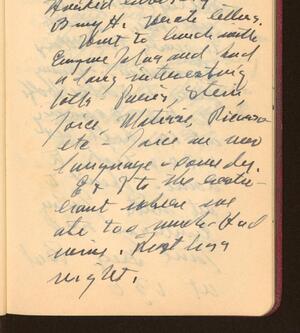 Busy H. wrote letters.
Went to lunch with
Eugene Jolas and had
a long interesting
talk - Paris, Stein,
Joyce, Matisse, Picasso
etc - Joyce on new
language & comedy.
E & I to the restau-
rant where we
ate too much. Had
wine. Rest
night.